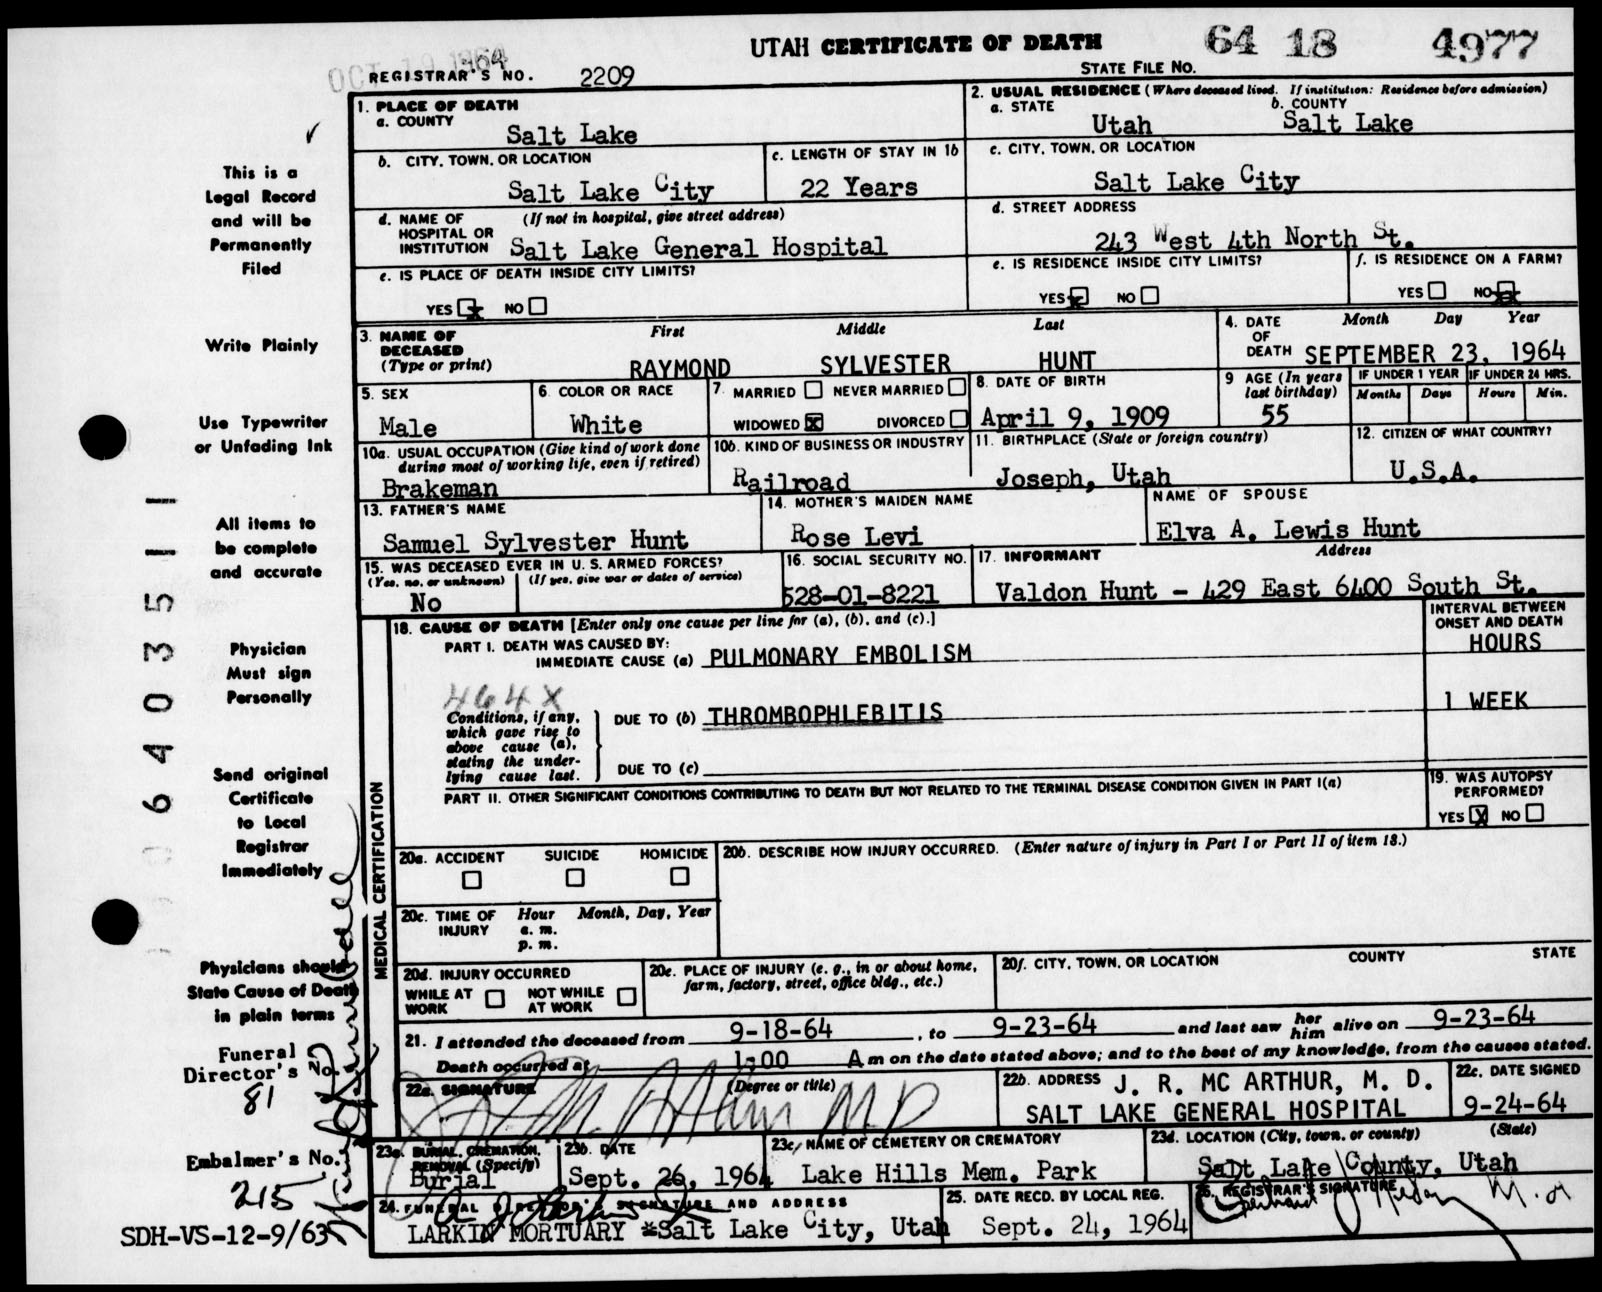 UTAH CERTIFICATE OF DEATH
64 18 4977
OCT 19 1964
REGISTRAR'S NO. 2209
STATE FILE NO.
1. PLACE OF DEATH
a. COUNTY
Salt Lake
2. USUAL RESIDENCE (Where deceased lived. If institution: Residence before admission)
a. STATE Utah
b. COUNTY Salt Lake
b. CITY, TOWN, OR LOCATION
Salt Lake City
c. LENGTH OF STAY IN 1b
22 Years
c. CITY, TOWN, OR LOCATION
Salt Lake City
d. NAME OF HOSPITAL OR INSTITUTION (If not in hospital, give street address)
Salt Lake General Hospital
d. STREET ADDRESS
243 West 4th North St.
e. IS PLACE OF DEATH INSIDE CITY LIMITS?
YES x NO
e. IS RESIDENCE INSIDE CITY LIMITS?
YES x NO
f. IS RESIDENCE ON A FARM?
YES NO x
3. NAME OF DECEASED (Type or print)
First Middle Last
RAYMOND SYLVESTER HUNT
4. DATE OF DEATH
Month Day Year
SEPTEMBER 23, 1964
5. SEX
Male
6. COLOR OR RACE
White
7. MARRIED NEVER MARRIED
WIDOWED X DIVORCED
8. DATE OF BIRTH
April 9, 1909
9 AGE (In years last birthday)
55
IF UNDER 1 YEAR
Months Days
IF UNDER 24 HRS.
Hours Min.
10a. USUAL OCCUPATION (Give kind of work done during most of working life, even if retired)
Brakeman
10b. KIND OF BUSINESS OR INDUSTRY
Railroad
11. BIRTHPLACE (State or foreign country)
Joseph, Utah
12. CITIZEN OF WHAT COUNTRY?
U.S.A.
13. FATHER'S NAME
Samuel Sylvester Hunt
14. MOTHER'S MAIDEN NAME
Rose Levi
NAME OF SPOUSE
Elva A. Lewis Hunt
15. WAS DECEASED EVER IN U. S. ARMED FORCES?
(Yes, no, or unknown) (If yes, give war or dates of service)
No
16. SOCIAL SECURITY NO.
528-01-8221
17. INFORMANT Address
Valdon Hunt - 429 East 6400 South St.
MEDICAL CERTIFICATION
18. CAUSE OF DEATH [Enter only one cause per line for (a), (b), and (c).]
INTERVAL BETWEEN ONSET AND DEATH
PART I. DEATH WAS CAUSED BY:
IMMEDIATE CAUSE (a) PULMONARY EMBOLISM
HOURS
464X
Conditions, if any, which gave rise to above cause (a), stating the underlying cause last.
DUE TO (b) THROMBOPHLEBITIS
1 WEEK
DUE TO (c)
PART II. OTHER SIGNIFICANT CONDITIONS CONTRIBUTING TO DEATH BUT NOT RELATED TO THE TERMINAL DISEASE CONDITION GIVEN IN PART I(a)
19. WAS AUTOPSY PERFORMED?
YES X NO
20a. ACCIDENT SUICIDE HOMICIDE
20b. DESCRIBE HOW INJURY OCCURRED. (Enter nature of injury in Part I or Part II of item 18.)
20c. TIME OF INJURY
Hour Month, Day, Year
a. m.
p. m.
20d. INJURY OCCURRED
WHILE AT WORK NOT WHILE AT WORK
20e. PLACE OF INJURY (e. g., in or about home, farm, factory, street, office bldg., etc.)
20f. CITY, TOWN, OR LOCATION COUNTY STATE
21. I attended the deceased from 9-18-64, to 9-23-64 and last saw her him alive on 9-23-64
Death occurred at 1:00 A m on the date stated above; and to the best of my knowledge, from the causes stated.
22a. SIGNATURE (Degree or title)
M D
22b. ADDRESS J. R. MC ARTHUR, M. D.
SALT LAKE GENERAL HOSPITAL
22c. DATE SIGNED
9-24-64
23a. BURIAL, CREMATION, REMOVAL (Specify)
Burial
23b. DATE
Sept. 26, 1964
23c. NAME OF CEMETERY OR CREMATORY
Lake Hills Mem. Park
23d. LOCATION (City, town, or county) (State)
Salt Lake County, Utah
24. FUNERAL DIRECTOR'S SIGNATURE AND ADDRESS
LARKIN MORTUARY *Salt Lake City, Utah
25. DATE RECD. BY LOCAL REG.
Sept. 24, 1964
26. REGISTRAR'S SIGNATURE
This is a
Legal Record
and will be
Permanently
Filed
Write Plainly
Use Typewriter
or Unfading Ink
All items to
be complete
and accurate
Physician
Must sign
Personally
Send original
Certificate
to Local
Registrar
Immediately
Physicians should
State Cause of Death
in plain terms
Funeral
Director's No.
81
Embalmer's No.
215
SDH-VS-12-9/63
0064035